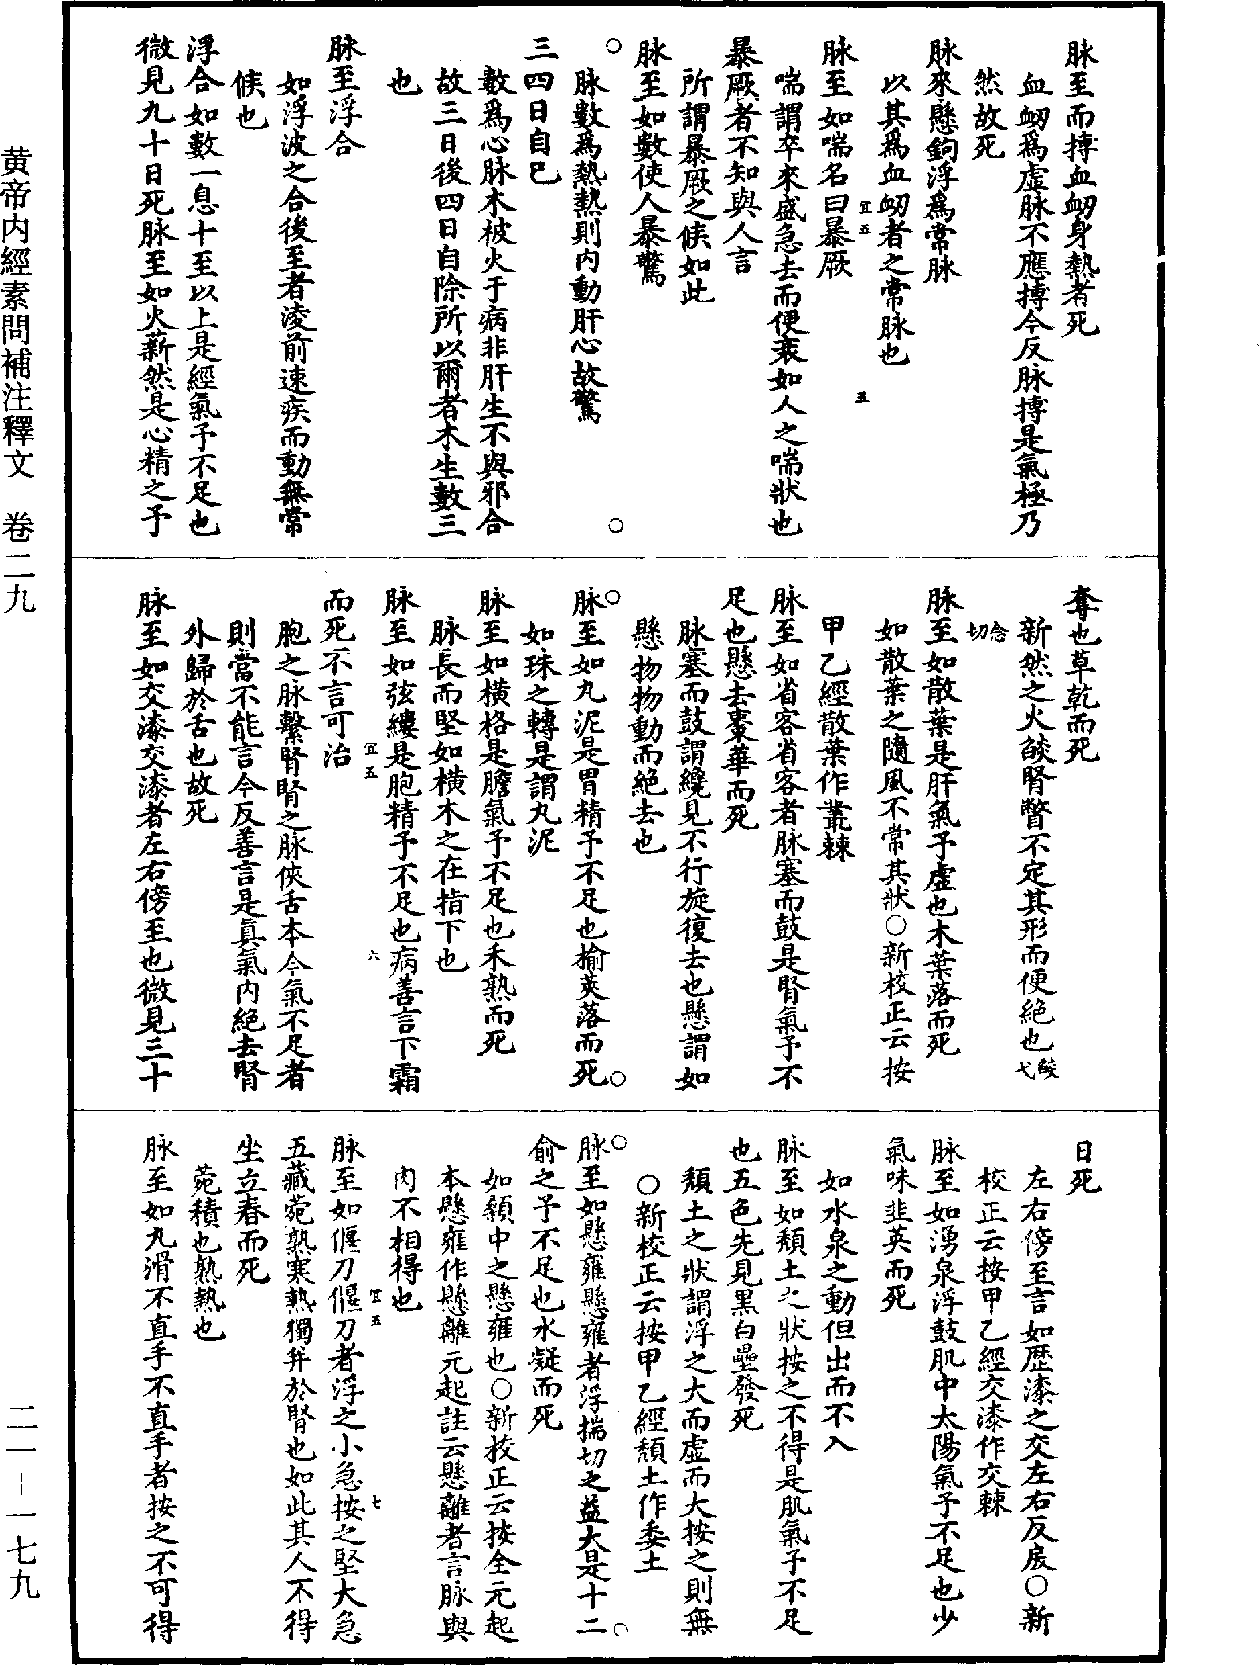 脉至而搏血衂身熱者死
血衂爲虛脉不應搏今反脉搏是氣極乃
然故死
脉來懸鉤浮爲常脉
以其爲血衂者之常脉也
脉至如喘名曰暴厥
喘謂卒來盛急去而便衰如人之喘狀也
暴厥者不知與人言
所謂暴厥之候如此
脉至如數使人暴驚
脉數爲熱熱則内動肝心故驚
三四日自已
數爲心脉木被火干病非肝生不與邪合
故三日後四日自除所以爾者木生數三
也
脉至浮合
如浮波之合後至者凌前速疾而動無常
候也
浮合如數一息十至以上是經氣予不足也
微見九十日死脉至如火薪然是心精之予
奪也草乾而死
新然之火燄腎瞥不定其形而便絶也
念切
脉至如散葉是肝氣予虛也木葉落而死
如散葉之隨風不常其狀○新校正云按
甲乙經散葉作叢棘
脉至如省客省客者脉塞而鼓是腎氣予不
足也懸去棗華而死
脉塞而鼓謂纔見不行旋復去也懸謂如
懸物物動而絶去也
脉至如丸泥是胃精予不足也榆莢落而死
如珠之轉是謂丸泥
脉至如橫格是膽氣予不足也禾熟而死
脉長而堅如橫木之在指下也
脉至如弦縷是胞精予不足也病善言下霜
而死不言可治
胞之脉繫腎腎之脉俠舌本今氣不足者
則當不能言今反善言是眞氣内絶去腎
外歸於舌也故死
脉至如交漆交漆者左右傍至也微見三十
日死
左右傍至言如瀝漆之交左右反戾○新
校正云按甲乙經交漆作交棘
脉至如湧泉浮鼓肌中太陽氣予不足也少
氣味韭英而死
如水泉之動但出而不入
脉至如頹土之狀按之不得是肌氣予不足
也五色先見黑白壘發死
頹土之狀謂浮之大而虛而大按之則無
○新校正云按甲乙經頹土作委土
脉至如懸雍懸雍者浮揣切之益大是十二
俞之予不足也水凝而死
如顙中之懸雍也○新校正云按全元起
本懸雍作懸離元起註云懸離者言脉與
肉不相得也
脉至如偃刀偃刀者浮之小急按之堅大急
五藏菀熟寒熱獨幷於腎也如此其人不得
坐立春而死
菀積也熟熱也
脉至如丸滑不直手不直手者按之不可得
黄帝内經素問補注釋文　卷二九
二一－一七九